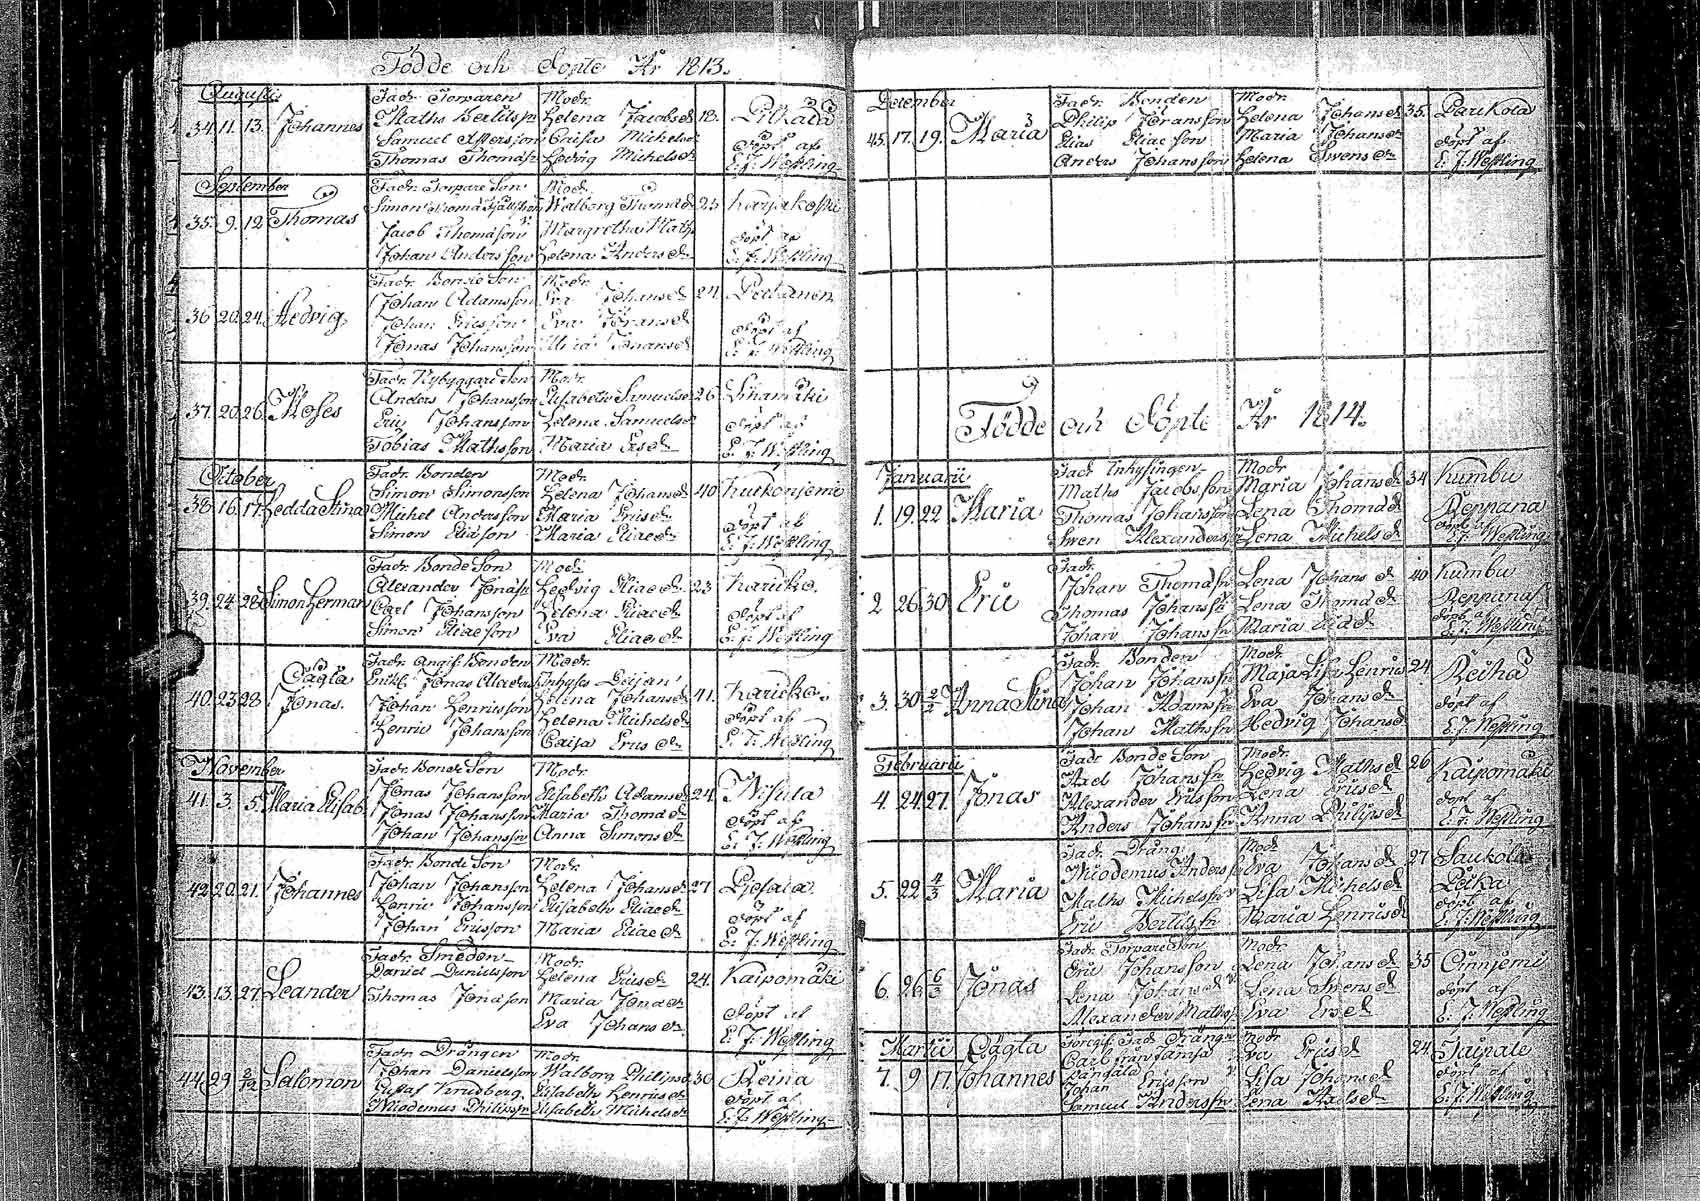 Födde och Döpte År 1813.
Augusti
34. 11. 13. Johannes
Fadr. Torparen Modr.
Maths Bertilss. Helena Jacobsd. 18. Pilkala
Samuel Caisa Michelsd. döpt af
Thomas Thomass. Hedvig Michelsd. E. J. Weßling
September
35. 9. 12 Thomas
Fadr. Torpare Son Modr.
Simon Thomas Walborg Thomasd. 23 Karjakoski
Jacob Thomasson Margretha Maths. döpt af
Johan Andersson Helena Andersd. E. J. Weßling
36 20 24. Hedvig
Fadr. Bonde Son Modr.
Johan Adamsson Eva Johansd. 24.
Johan Ericsson Eva Joransd. döpt af
Jonas Johansson Johansd. E. J. Weßling
37. 20. 26. Moses
Fadr. Nybyggare Son Modr.
Anders Johansson Elisabeth Samuelsd. 26 Lihamäki
Eric Johansson Helena Samuelsd. döpt af
Tobias Mathsson Maria Ersd. E. J. Weßling
October
38 16. 17. Hedda Stina
Fadr. Bonden Modr.
Simon Simonsson Helena Johansd. 40 Kuikonjemi
Michel Andersson Maria Ericsd. döpt af
Simon Eliasson Maria Eliaed. E. J. Weßling
39. 24. 26 Simon Herman
Fadr. Bonde Son Modr.
Alexander Jonass. Hedvig Eliaed. 23 Karicko.
Carl Johansson Helena Eliaed. döpt af
Simon Eliaeson Eva Eliaed. E. J. Weßling
40. 23 28. Oägta Jonas.
Fadr. Angif. Bonden Modr.
Enkl. Jonas Alexanders. Inhyses Pigan
Johan Henricsson Helena Johansd. 41. Karicko.
Henric Johansson Helena Michelsd. döpt af
Caisa Ericsd. E. J. Weßling
November
41. 3. 5. Maria Elisab.
Fadr. Bonde Son Modr.
Jonas Johansson Elisabeth Adamsd. 24. Nisula
Jonas Johansson Maria Thomasd. döpt af
Johan Johansson Anna Simonsd. E. J. Weßling
42. 20. 21. Johannes
Fadr. Bonde Son Modr.
Johan Johansson Helena Johansd. 27 Pjesala
Henric Johansson Elisabeth Eliaed. döpt af
Johan Ericsson Maria Eliaed. E. J. Weßling
43. 13. 27. Leander
Fadr. Smeden Modr.
Daniel Danielsson Helena Ericsd. 24. Kaipomäki
Thomas Jonasson Maria Jonaed. döpt af
Eva Johansd. E. J. Weßling
44. 29 2/12 Salomon
Fadr. Drängen Modr.
Johan Danielsson Walborg Philipsd. 30 Reina
Gustaf Elisabeth Henricsd. döpt af
Nicodemus Philipss. Elisabeth Michelsd. E. J. Weßling
December
45. 17. 19. Maria
Fadr. Bonden Modr.
Philip Joransson Helena Johansd. 35. Parikola
Elias Eliaeson Maria Johansd. döpt af
Anders Johansson Helena Svensd. E. J. Weßling
Födde och Döpte År 1814.
Januarii
1. 19. 22 Maria
Fadr Inhysingen Modr
Maths Jacobsson Maria Johansd. 34 Kumbu
Thomas Johansson Lena Thomasd. Reppana
Sven Alexanderss. Lena Michelsd. döpt af E. J. Weßling
2 26 30 Eric
Fadr.
Johan Thomass. Lena Johansd. 40 Kumbu
Thomas Johanss. Lena Thomasd. Reppana
Johan Johanss. Maria döpt af E. J. Weßling
3. 30 2/2 Anna Stina
Fadr. Bonden Modr
Johan Johanss. Maja Lisa Henricsd. 24 Reiha
Johan Adamss. Eva Johansd. döpt af
Johan Mathss. Hedvig Johansd. E. J. Weßling
Februarii
4. 24. 27. Jonas
Fadr Bonde Son Modr.
Axel Johanss. Hedvig Mathsd. 26 Kaipomäki
Alexander Ericsson Lena Ericsd. döpt af
Anders Johanss. Anna Philipsd. E. J. Weßling
5. 22. 4/3 Maria
Fadr. Dräng Modr
Nicodemus Anderss. Eva Johansd. 27 Saukola
Maths Michelss. Lisa Michelsd. döpt af
Eric Bertilss. Maria Henricsd. E. J. Weßling
6. 26. 6/3 Jonas
Fadr. Torpare Son Modr
Eric Johansson Lena Johansd. 35 Oinnjemi
Lena Johansd. Lena Svensd. döpt af
Alexander Mathss. Eva Ersd. E. J. Weßling
Martii Oägta
7. 9 17. Johannes
Föregif. Fadr. Dräng Modr
Carl från Jamsä Eva Ericsd. 24. Taipale
Johan Ericsson Lisa Johansd. döpt af
Samuel Anderss. Lena Axelsd. E. J. Weßling